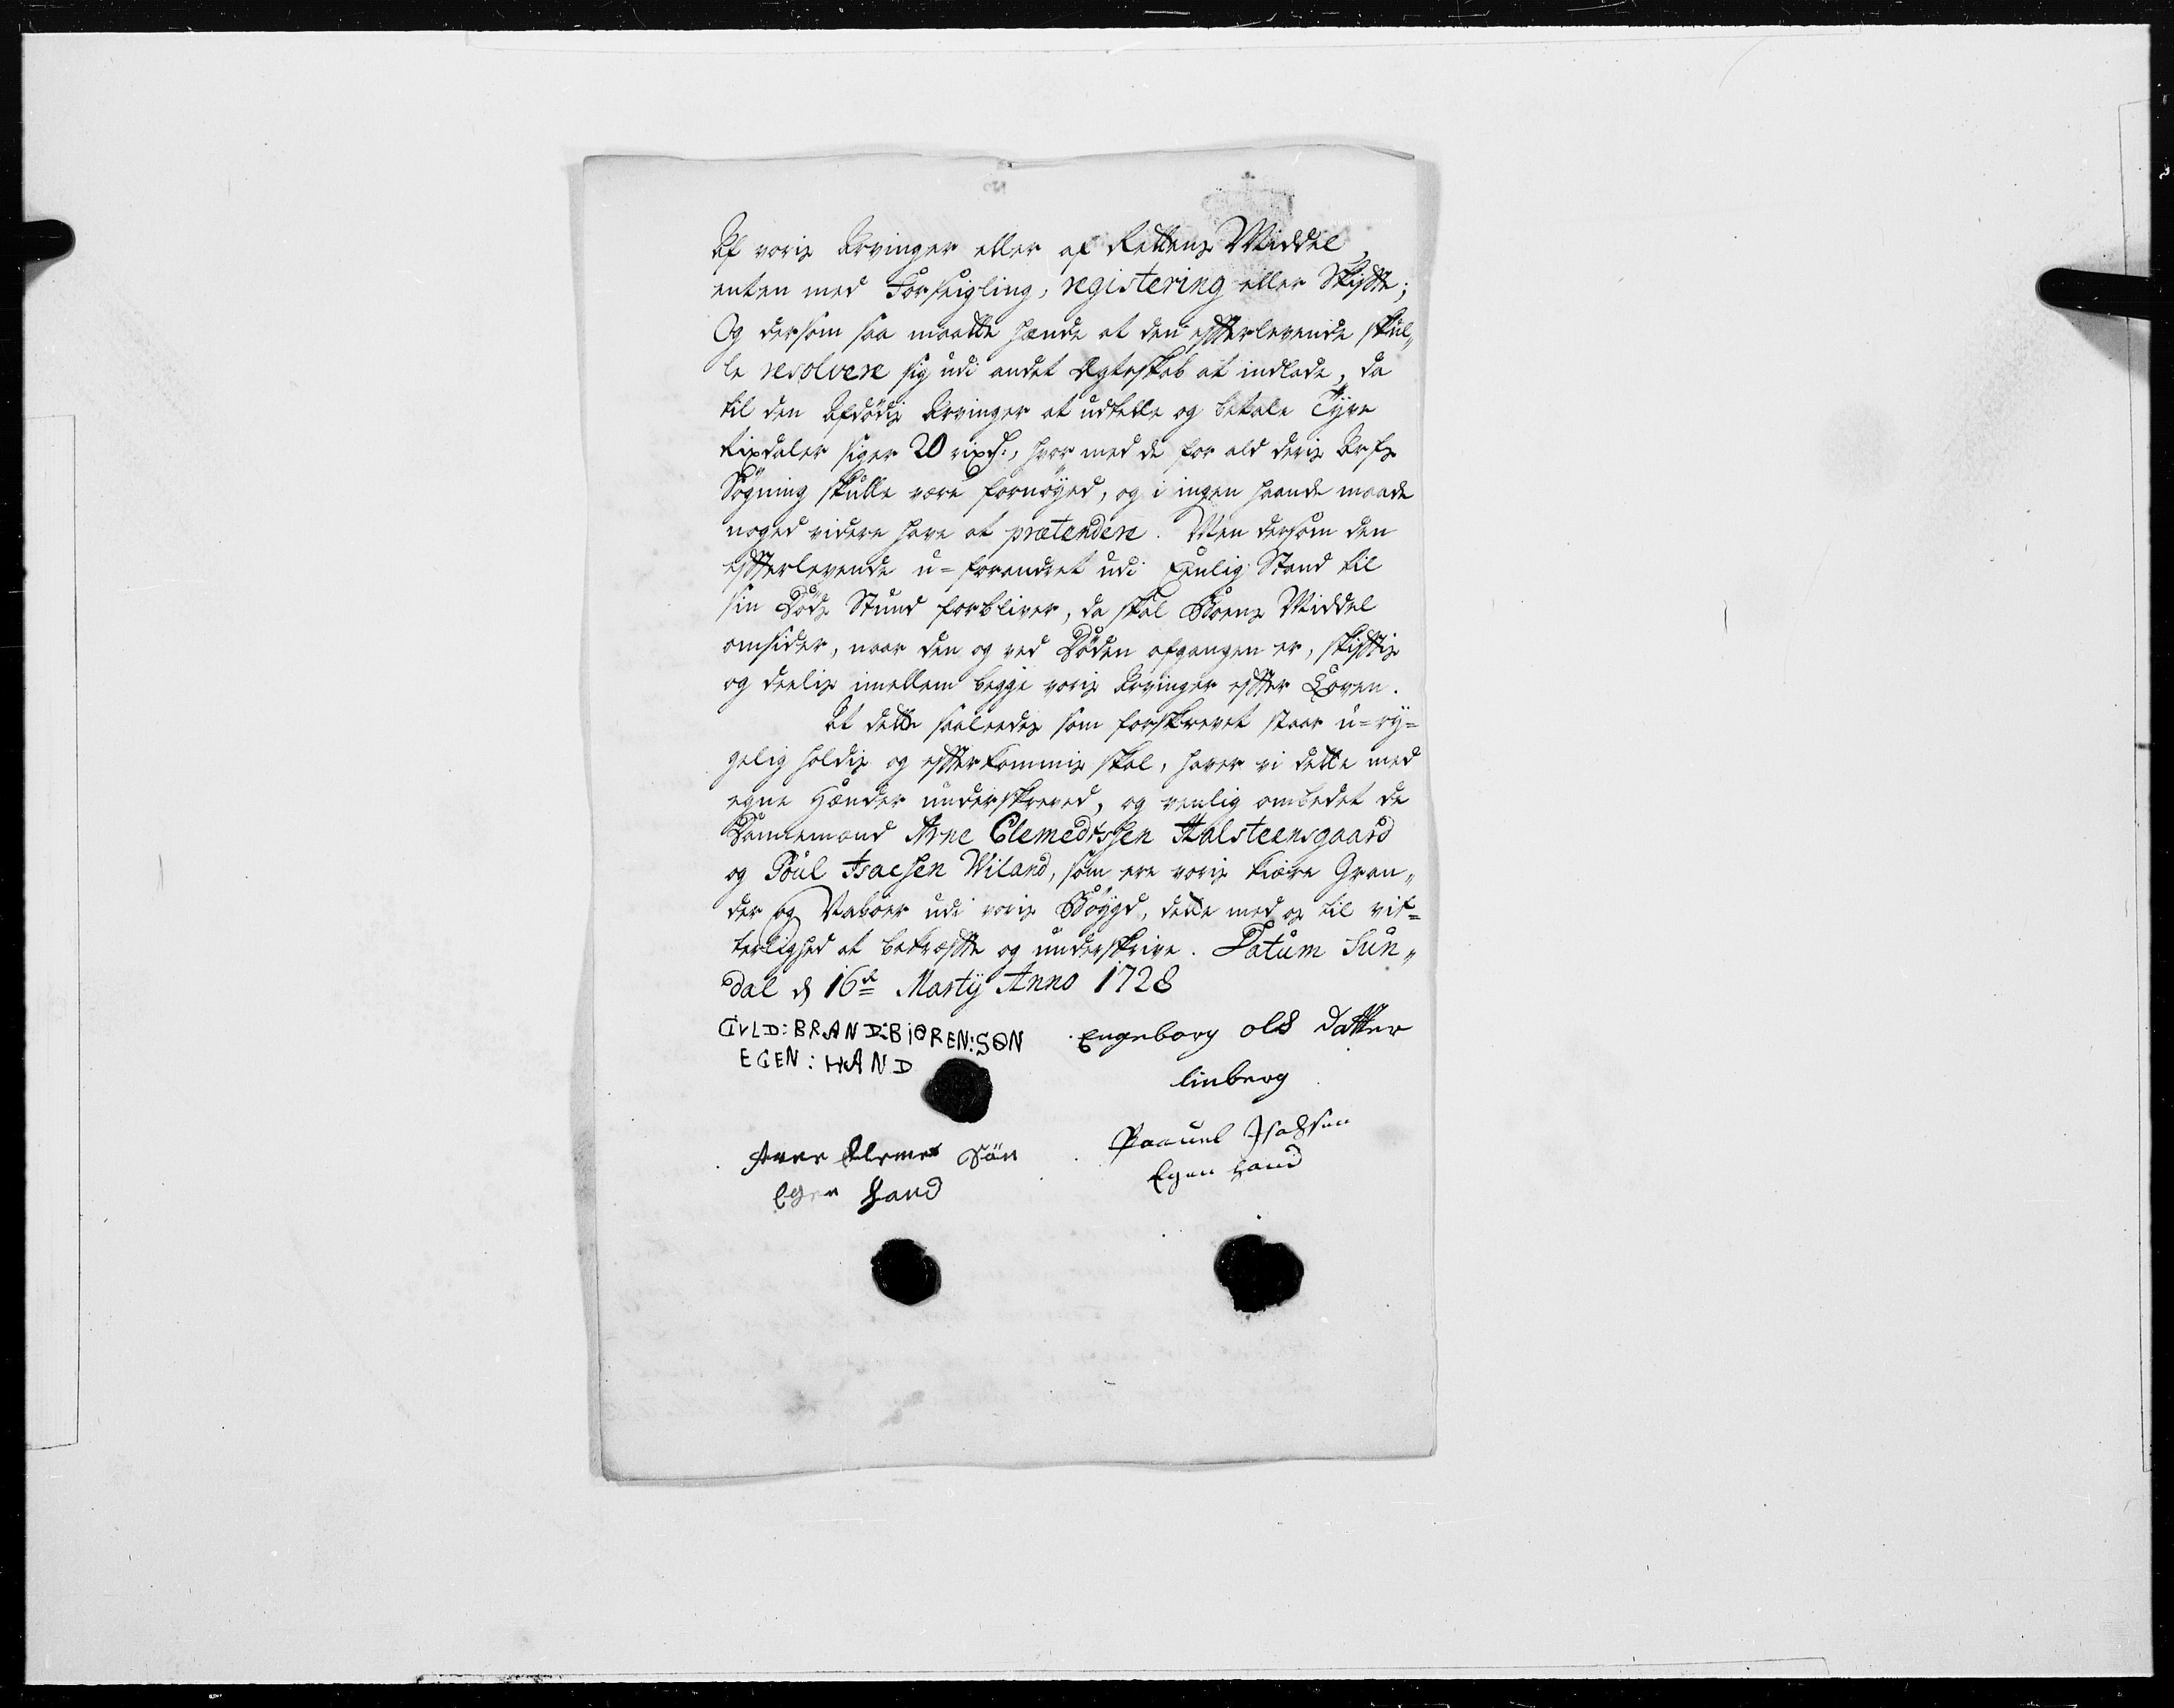 Af voris Arvinger eller af Rettens Middel,
enten med Forseigling, registering eller Skiffte;
Og dersom saa maatte hænde at den effterlevende skul„
le resolvere sig udi andet Ægteskab at indlade, da
til den Afdødis Arvinger at udtælle og betale Tyve
Rixdaler siger 20 rixd:, hvor med de for ald deris Arfs
Søgning skulle være fornøyed, og i ingen haande maade
noged videre have at prætendere. Men dersom den
effterlevende u=forandret udi Eenlig Stand til
sin Døds Stund forbliver, da skal Boens Middel
omsider, naar den og ved Døden afgangen er, skifftis
og deelis imellem begge voris Arvinger effter Loven.
At dette saaleedes som forskrevet staar u=ry=
gelig holdis og effterkommis skal, haver vi dette med
egne Hænder underskreved, og venlig ombedet de
Dannemænd Arne Clemedtssen Halsteensgaard
og Poul Isacsen Wiland, som ere voris kiære Gran„
der og Naboer udi voris Bøygd, dette med os til vit=
terlighed at bekræffte og underskrive. Datum Sun„
dal d 16de Martij Anno 1728
GVLD:BRAND:BIØREN:SØN
EGEN:HAND
Engeborg ols datter
linberg
Arne Clemet Søn
Egen Hand
Paauel Isachsen
Egen hand